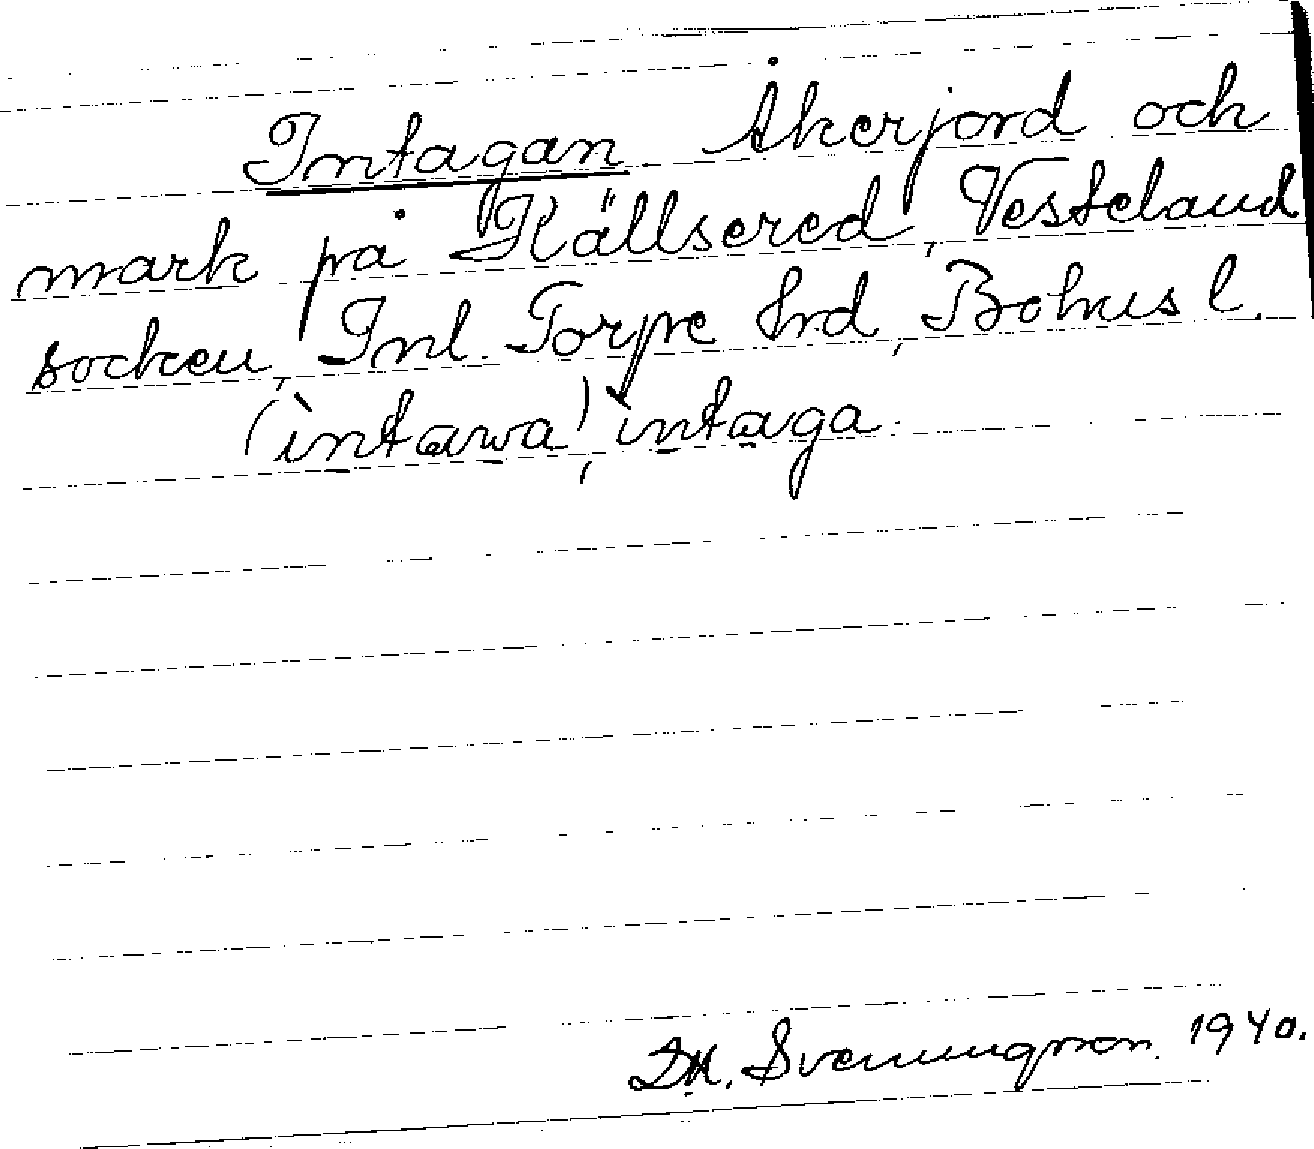 Intagan Åkerjord och
mark på Källsered, Vesteland
socken, Inl. Torpe hrd, Bohusl.
(intawa), intaga.
DM. Svenungsson. 1940.